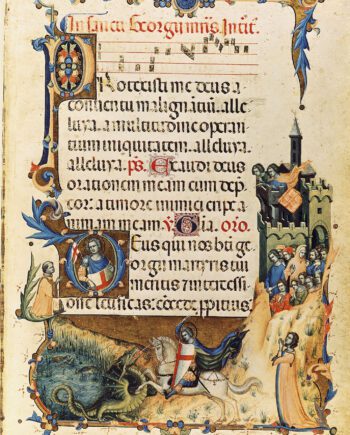 In sancti Georgii mris. Introit.
Protexisti me deus a
conventu malignātiū. alle
luya. a multitudine operan
tium iniquitatem. alleluya.
alleluya. ps. Exaudi deus
orationem meam cum dep
cor: a timore inimici eripe a
nimam meam. V. Gla. oro.
Deus qui nos bti ge
orgii martyris tui
meritis et intercessi
one letificas. concede ppitius